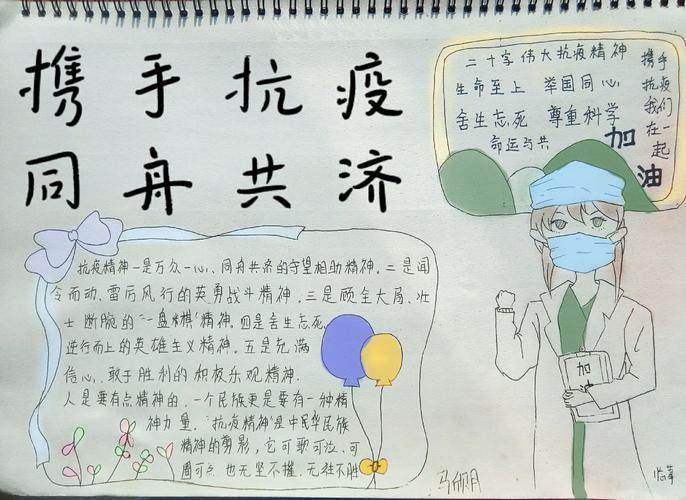 携手抗疫
同舟共济
二十字伟大抗疫精神
生命至上 举国同心
舍生忘死 尊重科学
命运与共
携手
抗疫
我们
在一
起
加
油
抗疫精神一是万众一心、同舟共济的守望相助精神。二是闻
令而动、雷厉风行的英勇战斗精神。三是顾全大局、壮
士断腕的“一盘棋”精神。四是舍生忘死、
逆行而上的英雄主义精神。五是充满
信心、敢于胜利的积极乐观精神.
人是要有点精神的,一个民族更是要有一种精
神力量.“抗疫精神”是中民华民族
精神的剪影,它可歌可泣、可
圈可点 也无坚不摧、无往不胜
加
油
临摹